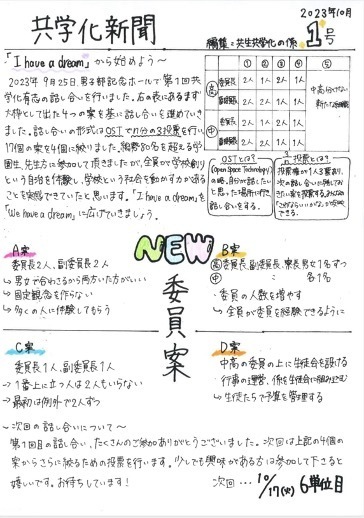 共学化新聞
2023年10月
1号
編集：共生共学化の係
「I have a dream」から始めよう〜
2023年9月25日、男子部記念ホールで第1回共
学化有志の話し合いを行いました。右の表にあるます
大枠として出た4つの案を基に話し合いを進めていき
ました。話し合いの形式はOSTやn分の3投票を行い
17個の案を4個に絞りました。総勢80名を超える学
園生、先生方に参加して頂きましたが、全員が学校創り
という自治を体験し、学校という社会を動かす力がある
ことを実感できていたと思います。「I have a dream」を
「We have a dream」に広げていきましょう。
① ② ③ ④ ⑤
高 委員長 2人 1人 2人 1人
副委員長 2人 1人 1人 2人
中 委員長 2人 1人 2人 1人
副委員長 2人 1人 1人 2人
中高分けない
新たな組織
OSTとは？
(Open Space Technology)
の略。自分が話したいと
思った場所に行き
話し合いをする。
投票とは？
投票権が1人3票あり、
次の話し合いに残してお
きたい案を投票する。
できる。
NEW
委員案
A案
委員長2人、副委員長2人
→男女で合わさるから両方いた方がいい
→固定観念を作らない
→多くの人に体験してもらう
B案
高 委員長、副委員長、寮長男女1名ずつ
中 〃 各1名
・委員の人数を増やす
→全員が委員を経験できるように
C案
委員長1人、副委員長1人
→1番上に立つ人は2人もいらない
→最初は例外で2人ずつ
D案
中高の委員の上に生徒会を設ける
行事の運営、係を生徒会に組み込む
→生徒たちで予算を管理する
〜次回の話し合いについて〜
第1回目の話し合い、たくさんのご参加ありがとうございました。次回は上記の4個の
案からさらに絞るための投票を行います。少しでも興味がある方は参加して下さると
嬉しいです。お待ちしています！
次回…10/17(火) 6単位目